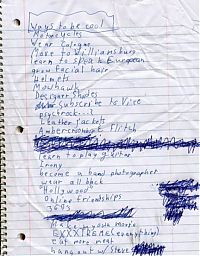 Ways to be cool
Motorcycles
Wear Cologne
Move to Williamsburg
learn to speak European
grow facial hair
Helmets
Mowhawk
Designer Shades
Subscribe to Vice
psychrock...
Leather Jackets
Ambercrombie + Flitch
learn to play guitar
Irony
become a hand photographer
wear all black
"Hollywood"
Online friendships
Make my own movie
EXXXTREME (everything)
eat more meat
hang out w/ Steve